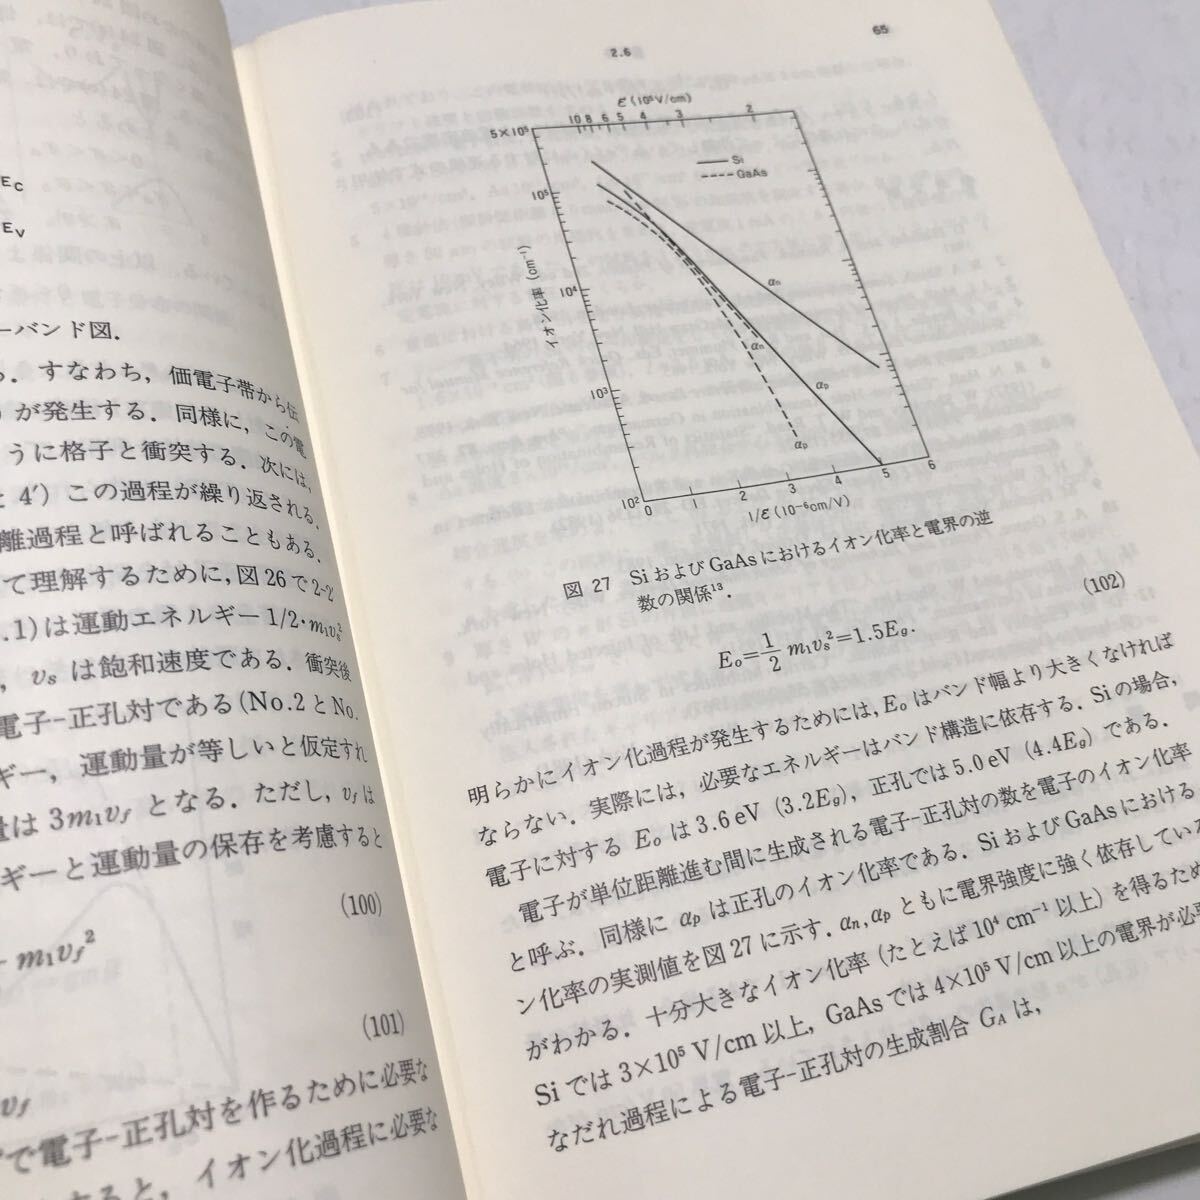 E_C
E_V
ーバンド図．
．すなわち，価電子帯から伝
が発生する．同様に，この電
うに格子と衝突する．次には，
4′）この過程が繰り返される．
離過程と呼ばれることもある．
て理解するために，図26で2-2
.1)は運動エネルギー1/2・m₁v_s²
，v_s は飽和速度である．衝突後
電子-正孔対である(No.2とNo.
ギー，運動量が等しいと仮定すれ
量は 3m₁v_f となる．ただし，v_f は
ギーと運動量の保存を考慮すると
(100)
m₁v_f²
(101)
v_f
で電子-正孔対を作るために必要な
すると，イオン化過程に必要な
2.6
65
ℰ(10⁵V/cm)
10 8 6 5 4 3 2
5×10⁵
10⁵
10⁴
10³
10²
イオン化率(cm⁻¹)
Si
GaAs
α_n
α_n
α_p
α_p
0 1 2 3 4 5 6
1/ℰ(10⁻⁶cm/V)
図 27 SiおよびGaAsにおけるイオン化率と電界の逆
数の関係¹³．
E₀=1/2 m₁v_s²=1.5E_g.
(102)
明らかにイオン化過程が発生するためには，E₀はバンド幅より大きくなければ
ならない．実際には，必要なエネルギーはバンド構造に依存する．Siの場合，
電子に対する E₀ は3.6eV（3.2E_g），正孔では5.0eV（4.4E_g）である．
電子が単位距離進む間に生成される電子-正孔対の数を電子のイオン化率
と呼ぶ．同様に α_p は正孔のイオン化率である．SiおよびGaAsにおける
ン化率の実測値を図27に示す．α_n, α_p ともに電界強度に強く依存している
がわかる．十分大きなイオン化率（たとえば10⁴ cm⁻¹ 以上）を得るため
Siでは 3×10⁵ V/cm以上，GaAsでは 4×10⁵ V/cm以上の電界が必要
なだれ過程による電子-正孔対の生成割合 G_A は，